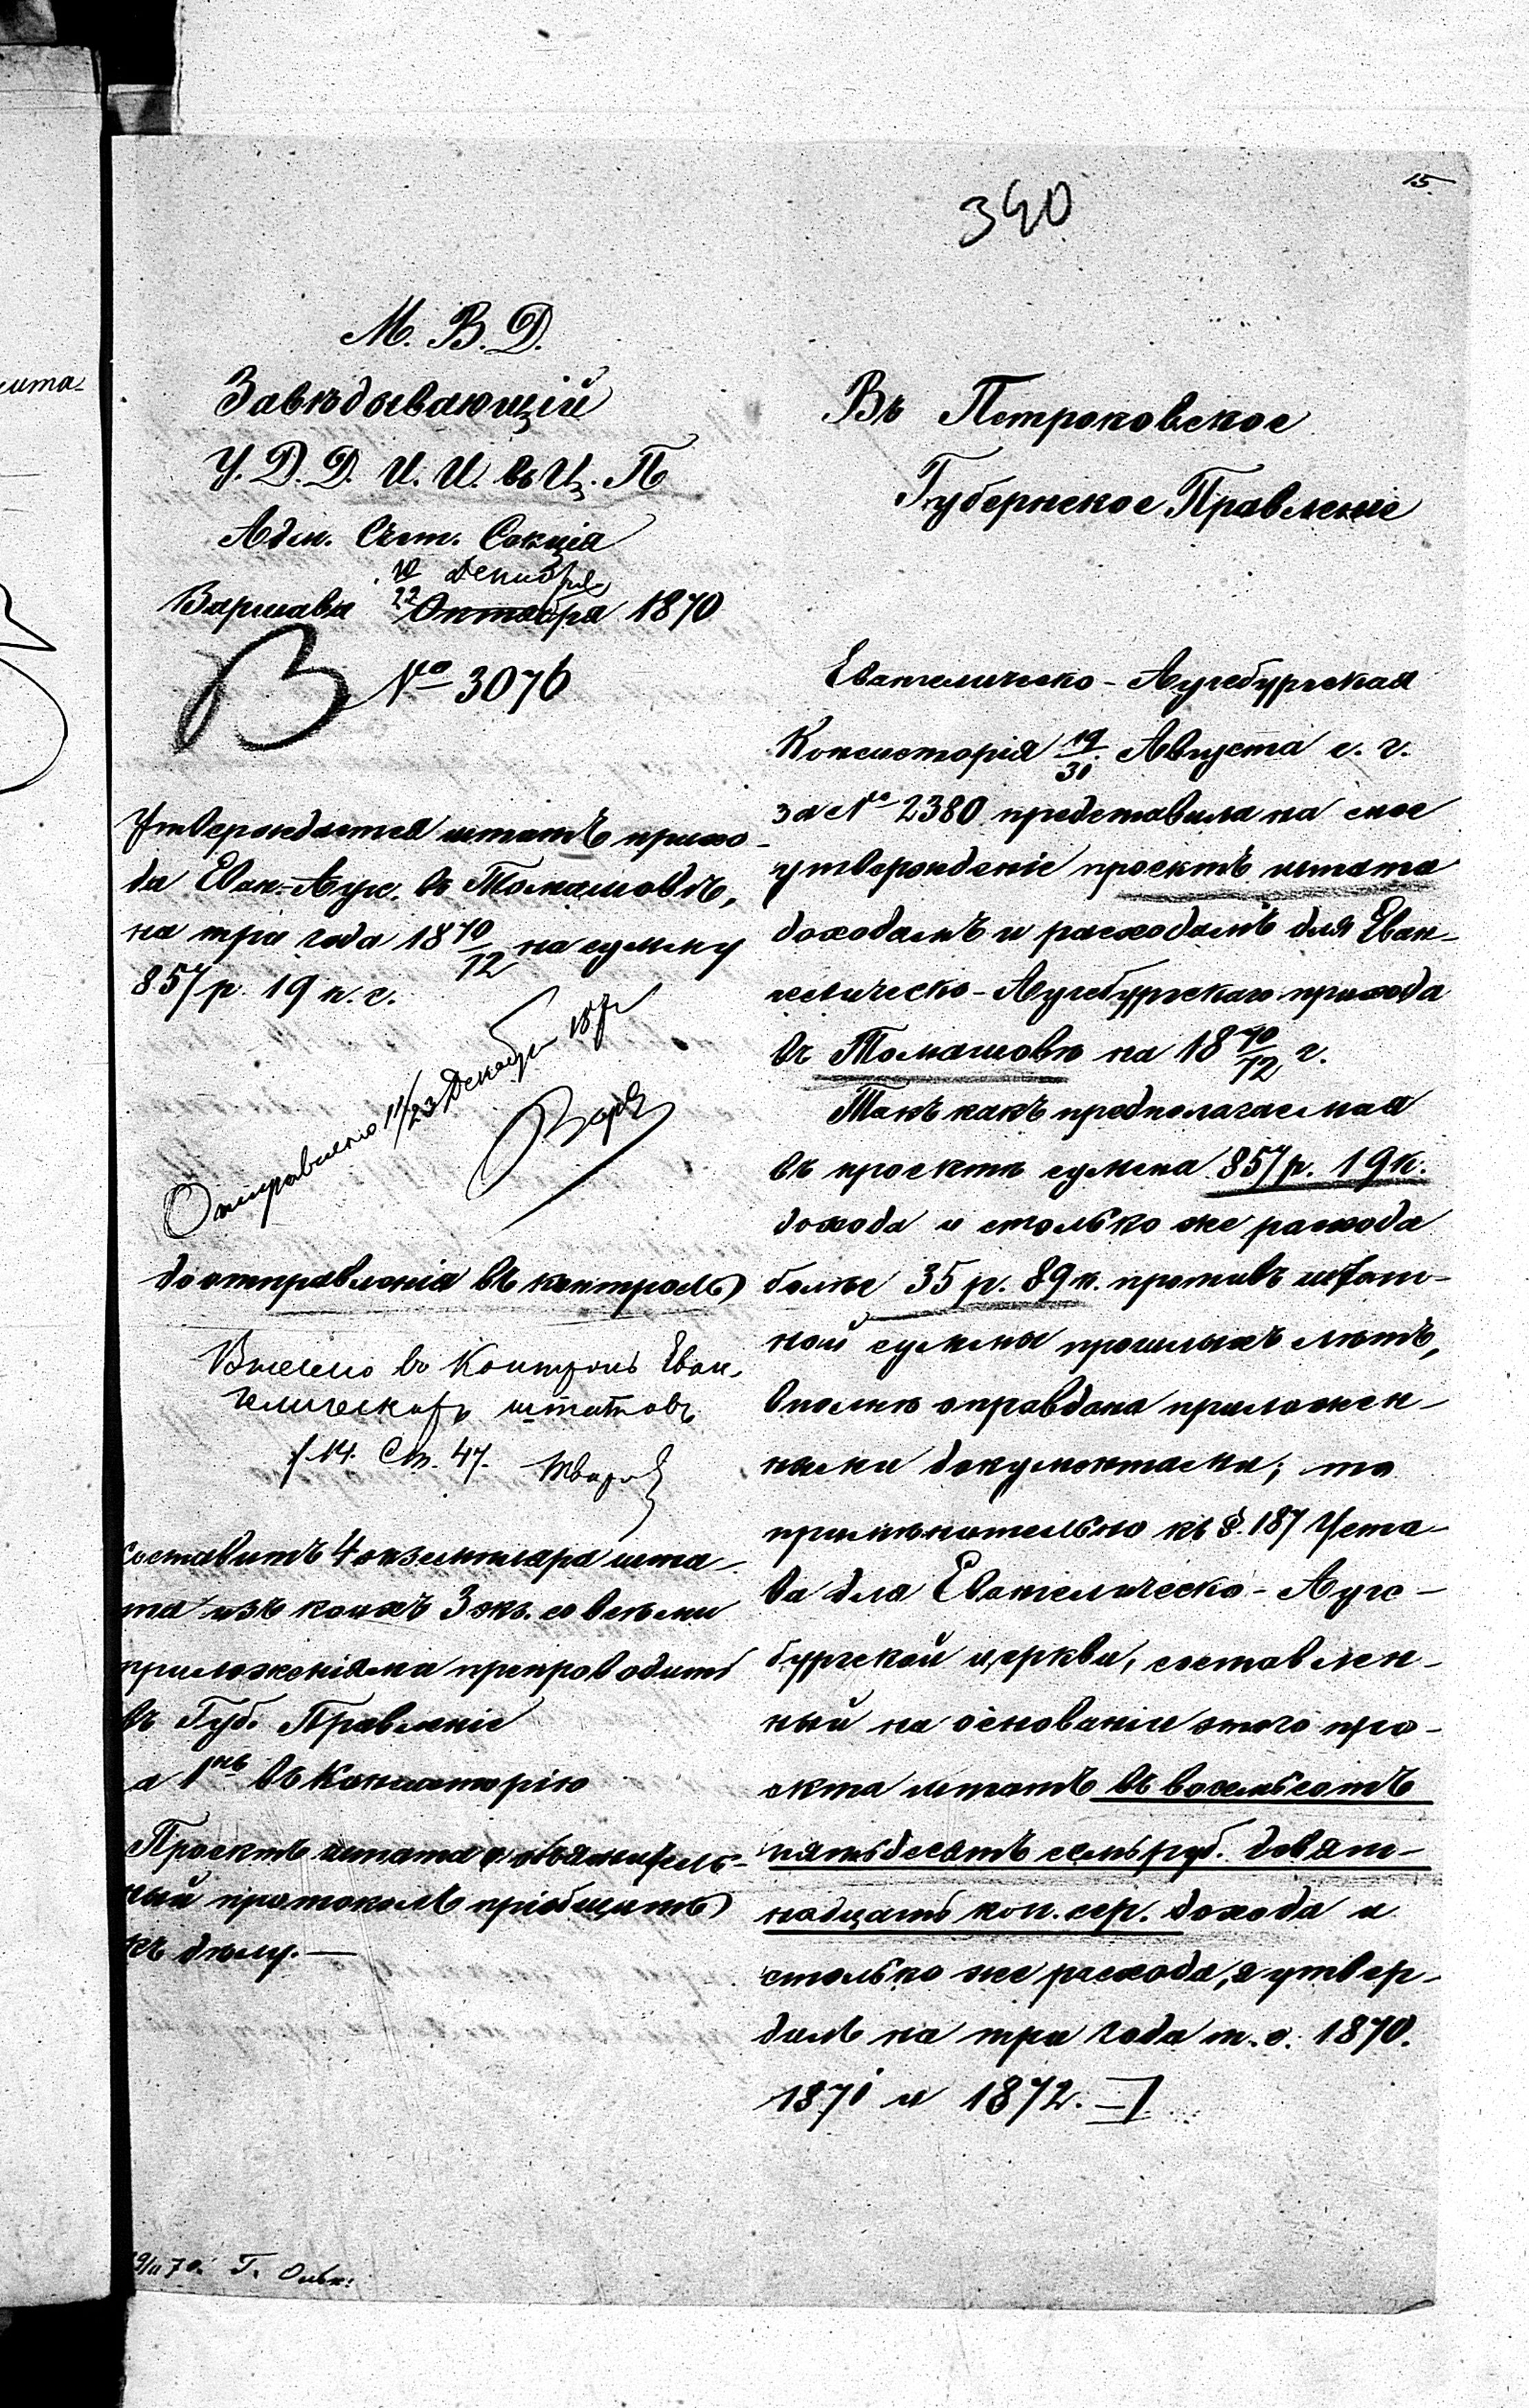 15.
340
М. В. Д.
Завѣдывающій
У. Д. Д. И. И. въ Ц. П
Адм. Счет. Секція
10 Декабря
Варшава 22 Октября 1870
№ 3076
Утверждается штатъ прихо-
да Еван.-Аугс. въ Томашовѣ,
на три года 18 70/72 на сумму
857 р. 19 к. с.
Отправлено 11/23 Декабр 187
до отправленія въ контроль
Внесено въ Контроль Еван-
гелическихъ штатовъ
f. 14. Ст. 47.
Составить 4 экземпляра шта-
та изъ коихъ 3 экз. со всѣми
приложеніями препроводить
въ Губ. Правленіе
а 1нъ въ Консисторію
Проектъ штата и объяснитель-
ный протоколъ пріобщить
къ дѣлу. —
Въ Петроковское
Губернское Правленіе
Евангелическо-Аугсбургская
Консисторія 19/31 Августа с. г.
за № 2380 представила на мое
утвержденіе проектъ штата
доходамъ и расходамъ для Еван-
гелическо-Аугсбургскаго прихода
въ Томашовѣ на 18 70/72 г.
Такъ какъ предполагаемая
въ проектѣ сумма 857 р. 19 к.
дохода и столько же расхода
болѣе 35 р. 89 к. противъ штат-
ной суммы прошлыхъ лѣтъ,
вполнѣ оправдана приложен-
ными документами; то
примѣнительно къ §. 187 Уста-
ва для Евангелическо-Аугс-
бургской церкви, составлен-
ный на основаніи этого про-
екта штатъ въ восемьсотъ
пятьдесятъ семь руб. девят-
надцать коп. сер. дохода и
столько же расхода, я утвер-
дилъ на три года т. е. 1870.
1871 и 1872.